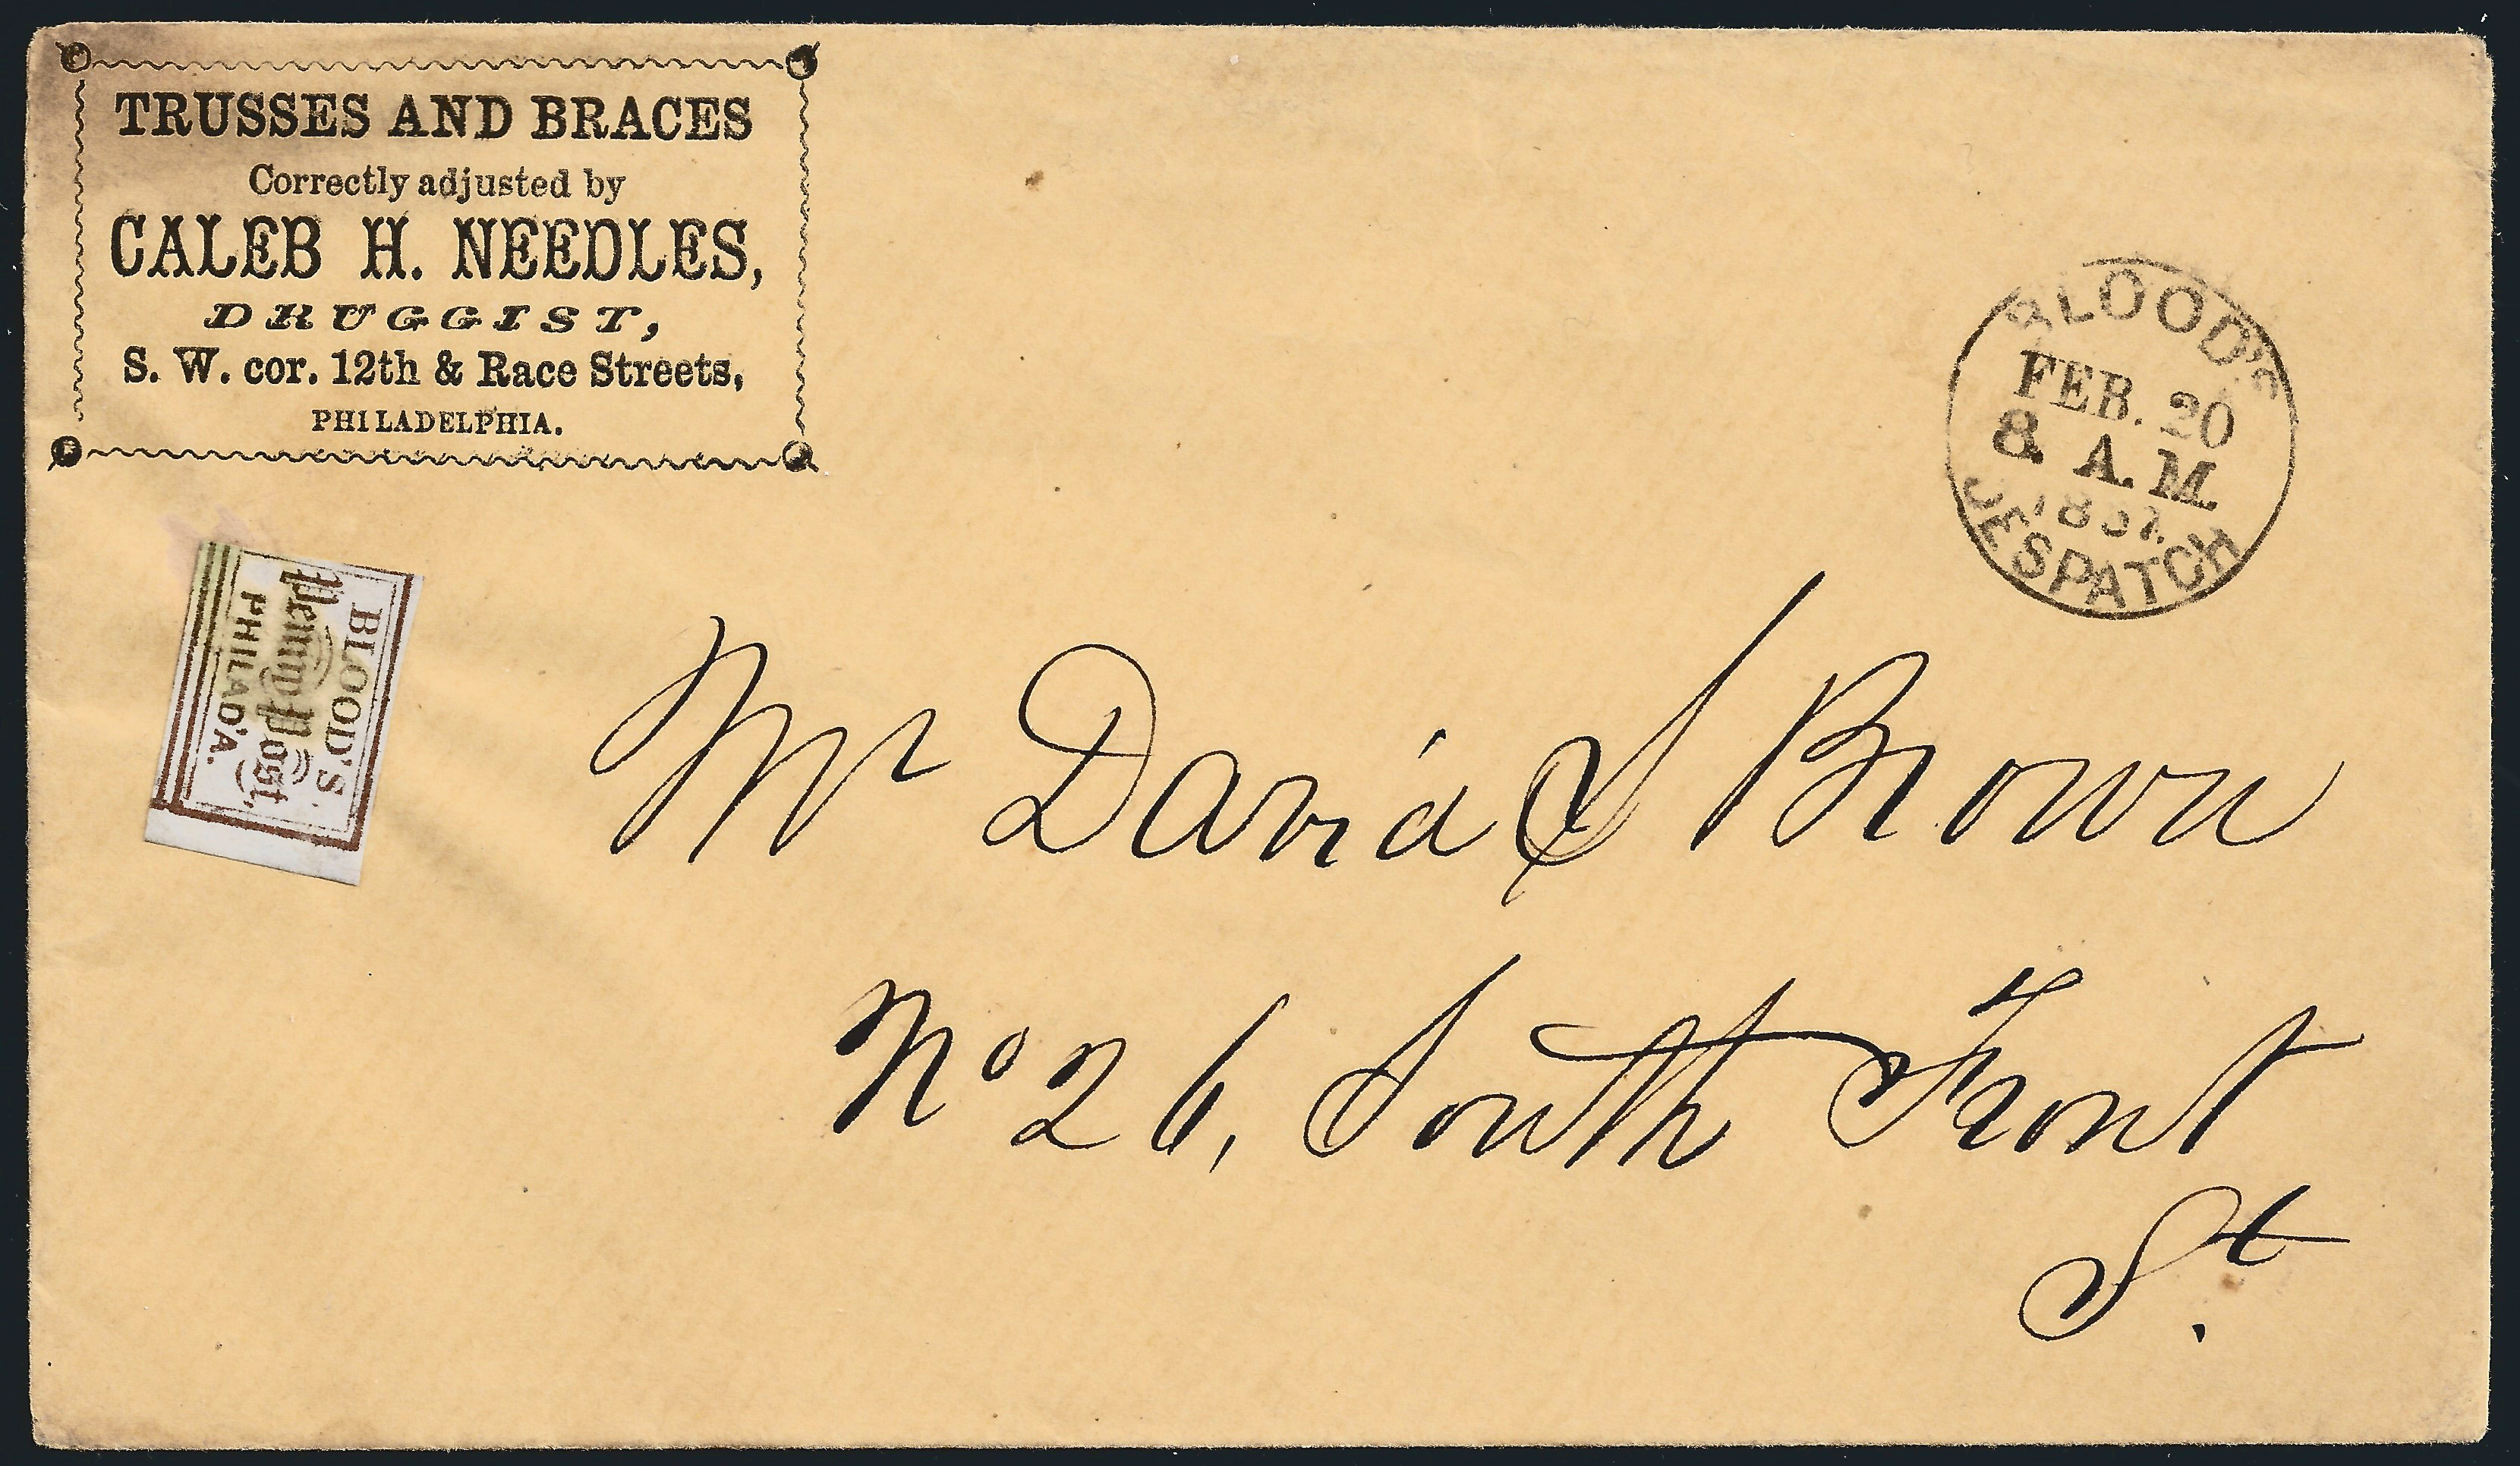 TRUSSES AND BRACES
Correctly adjusted by
CALEB H. NEEDLES,
DRUGGIST,
S. W. cor. 12th & Race Streets,
PHILADELPHIA.
BLOOD'S
FEB. 20
8. A. M.
1857.
DESPATCH
BLOOD'S
Penny Post,
PHILAD'A.
Mr David S Brown
No 26, South Front
St.